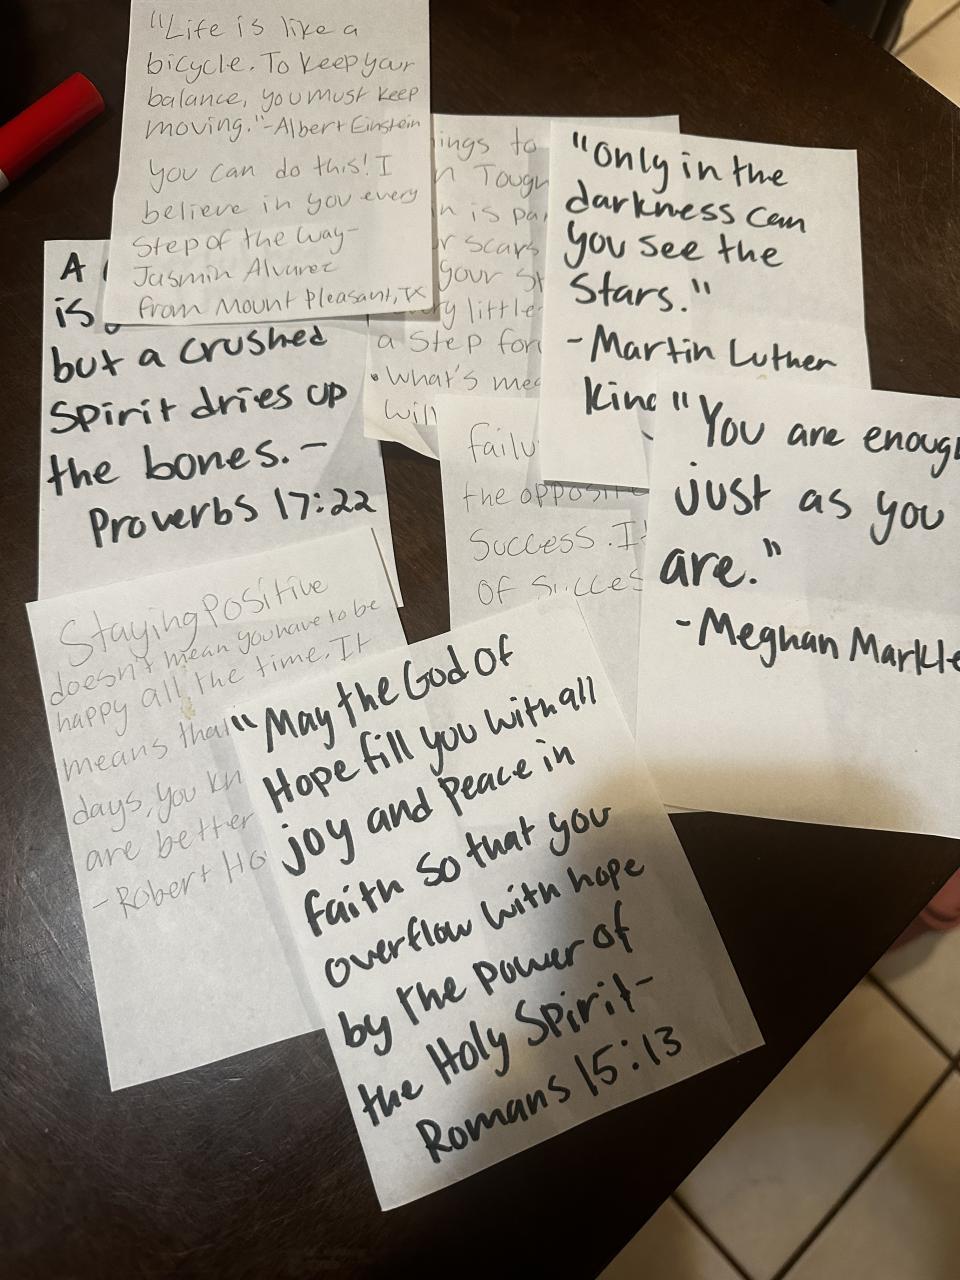 "Life is like a
bicycle. To keep your
balance, you must keep
moving."-Albert Einstein
you can do this! I
believe in you every
Step of the way-
Jasmin Alvarez
from Mount Pleasant, TX
to
Tough
is
scars
your
little
a step
• What's
will
"Only in the
darkness can
you see the
Stars."
-Martin Luther
King
A
is
but a crushed
spirit dries up
the bones. -
Proverbs 17:22
the opposite
Success. It
of success
"You are enough
just as you
are."
-Meghan Markle
Staying Positive
doesn't mean you have to be
happy all the time. It
means that
days, you
are better
-Robert
"May the God of
Hope fill you with all
joy and peace in
faith so that you
overflow with hope
by the power of
the Holy Spirit-
Romans 15:13